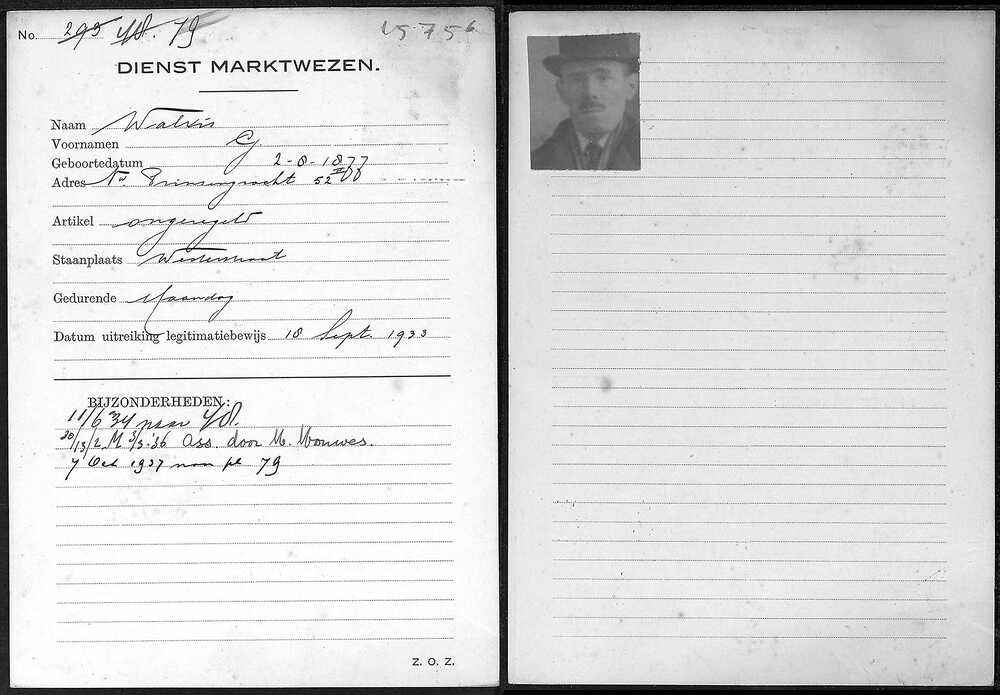 No. 295 48. 79 45756
DIENST MARKTWEZEN.
Naam Walvis
Voornamen G
Geboortedatum 2-8-1877
Adres Nw. Prinsengracht 52 III
Artikel ongeregeld
Staanplaats Westerstraat
Gedurende Maandag
Datum uitreiking legitimatiebewijs 18 Sept. 1933
BIJZONDERHEDEN:
11/6 34 naar 48.
20/13/2 M 3/3-'36 Ass. door M. Mouwes.
7 Oct 1937 naar pl 79
Z. O. Z.